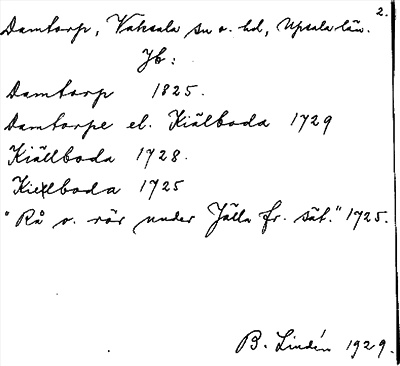 2.
Damtorp, Vaksala sn o. hd, Upsala län.
Jb:
Damtorp 1825.
Damtorpe el. Kiälboda 1729
Kiällboda 1728.
Kiellboda 1725
"Rå o. rör under Jälla fr. sät." 1725.
B. Lindén 1929.